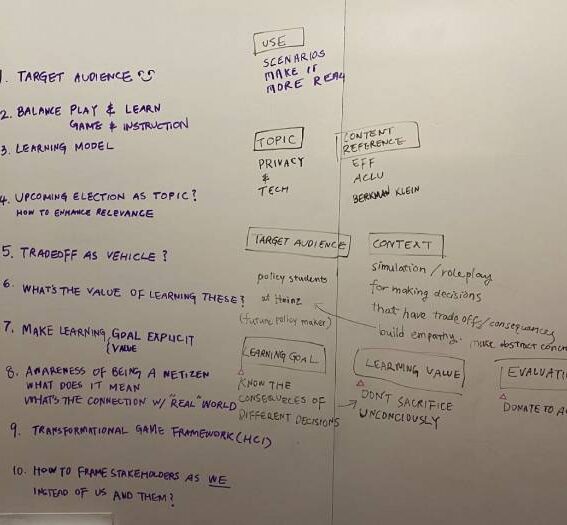 1. TARGET AUDIENCE
2. BALANCE PLAY & LEARN
GAME & INSTRUCTION
3. LEARNING MODEL
4. UPCOMING ELECTION AS TOPIC?
HOW TO ENHANCE RELEVANCE
5. TRADEOFF AS VEHICLE?
6. WHAT'S THE VALUE OF LEARNING THESE?
7. MAKE LEARNING GOAL EXPLICIT
VALUE
8. AWARENESS OF BEING A NETIZEN
WHAT DOES IT MEAN
WHAT'S THE CONNECTION W/ "REAL" WORLD
9. TRANSFORMATIONAL GAME FRAMEWORK (HCI)
10. HOW TO FRAME STAKEHOLDERS AS WE
INSTEAD OF US AND THEM?
USE
SCENARIOS
MAKE IT
MORE REAL
TOPIC
PRIVACY
&
TECH
CONTENT
REFERENCE
EFF
ACLU
BERKMAN KLEIN
TARGET AUDIENCE
policy students
at Heinz
(future policy maker)
CONTEXT
simulation / roleplay
for making decisions
that have tradeoffs/consequences
build empathy. make abstract
LEARNING GOAL
KNOW THE
DIFFERENT DECISIONS
LEARNING VALUE
DON'T SACRIFICE
UNCONCIOUSLY
DONATE TO